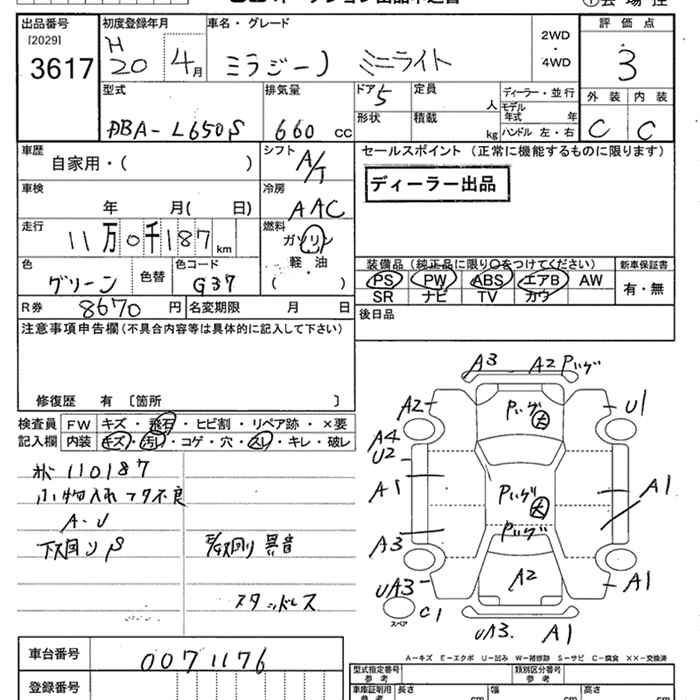 出品番号
[2029]
3617
初度登録年月
H
20
4月
車名・グレード
ミラジーノ ミニライト
2WD
・
4WD
評価点
3
外装 内装
C C
型式
DBA-L650S
排気量
660 cc
ドア 5
形状
定員
人
積載
kg
ディーラー・並行
モデル
年式 年
ハンドル 左・右
車歴
自家用・( )
シフト
A/T
セールスポイント (正常に機能するものに限ります)
ディーラー出品
車検
年 月( 日)
冷房
AAC
走行
11万0千187 km
燃料
ガソリン
軽・油
( )
色
グリーン
色替
色コード
G37
装備品(純正品に限り○をつけてください)
新車保証書
PS PW ABS エアB AW
有・無
SR ナビ TV カワ
R券 8670 円
名変期限 月 日
後日品
注意事項申告欄(不具合内容等は具体的に記入して下さい)
修復歴 有 〔箇所 〕
検査員
記入欄
FW キズ・飛石・ヒビ割・リペア跡・×要
内装 キズ・汚レ・コゲ・穴・スレ・キレ・破レ
110187
小物入れフタ不良
A・U
下回りS
異音
スタッドレス
A3 A2
A2 U1
A4
U2
A1 A1
A3
UA3 A2 A1
スペア
C1
UA3. A1
A-キズ E-エクボ U-凹み W-補修跡 S-サビ C-腐食 XX-交換済
車台番号
0071176
登録番号
型式指定番号
参考
類別区分番号
参考
車庫証明用
参考
長さ cm
幅 cm
高さ cm